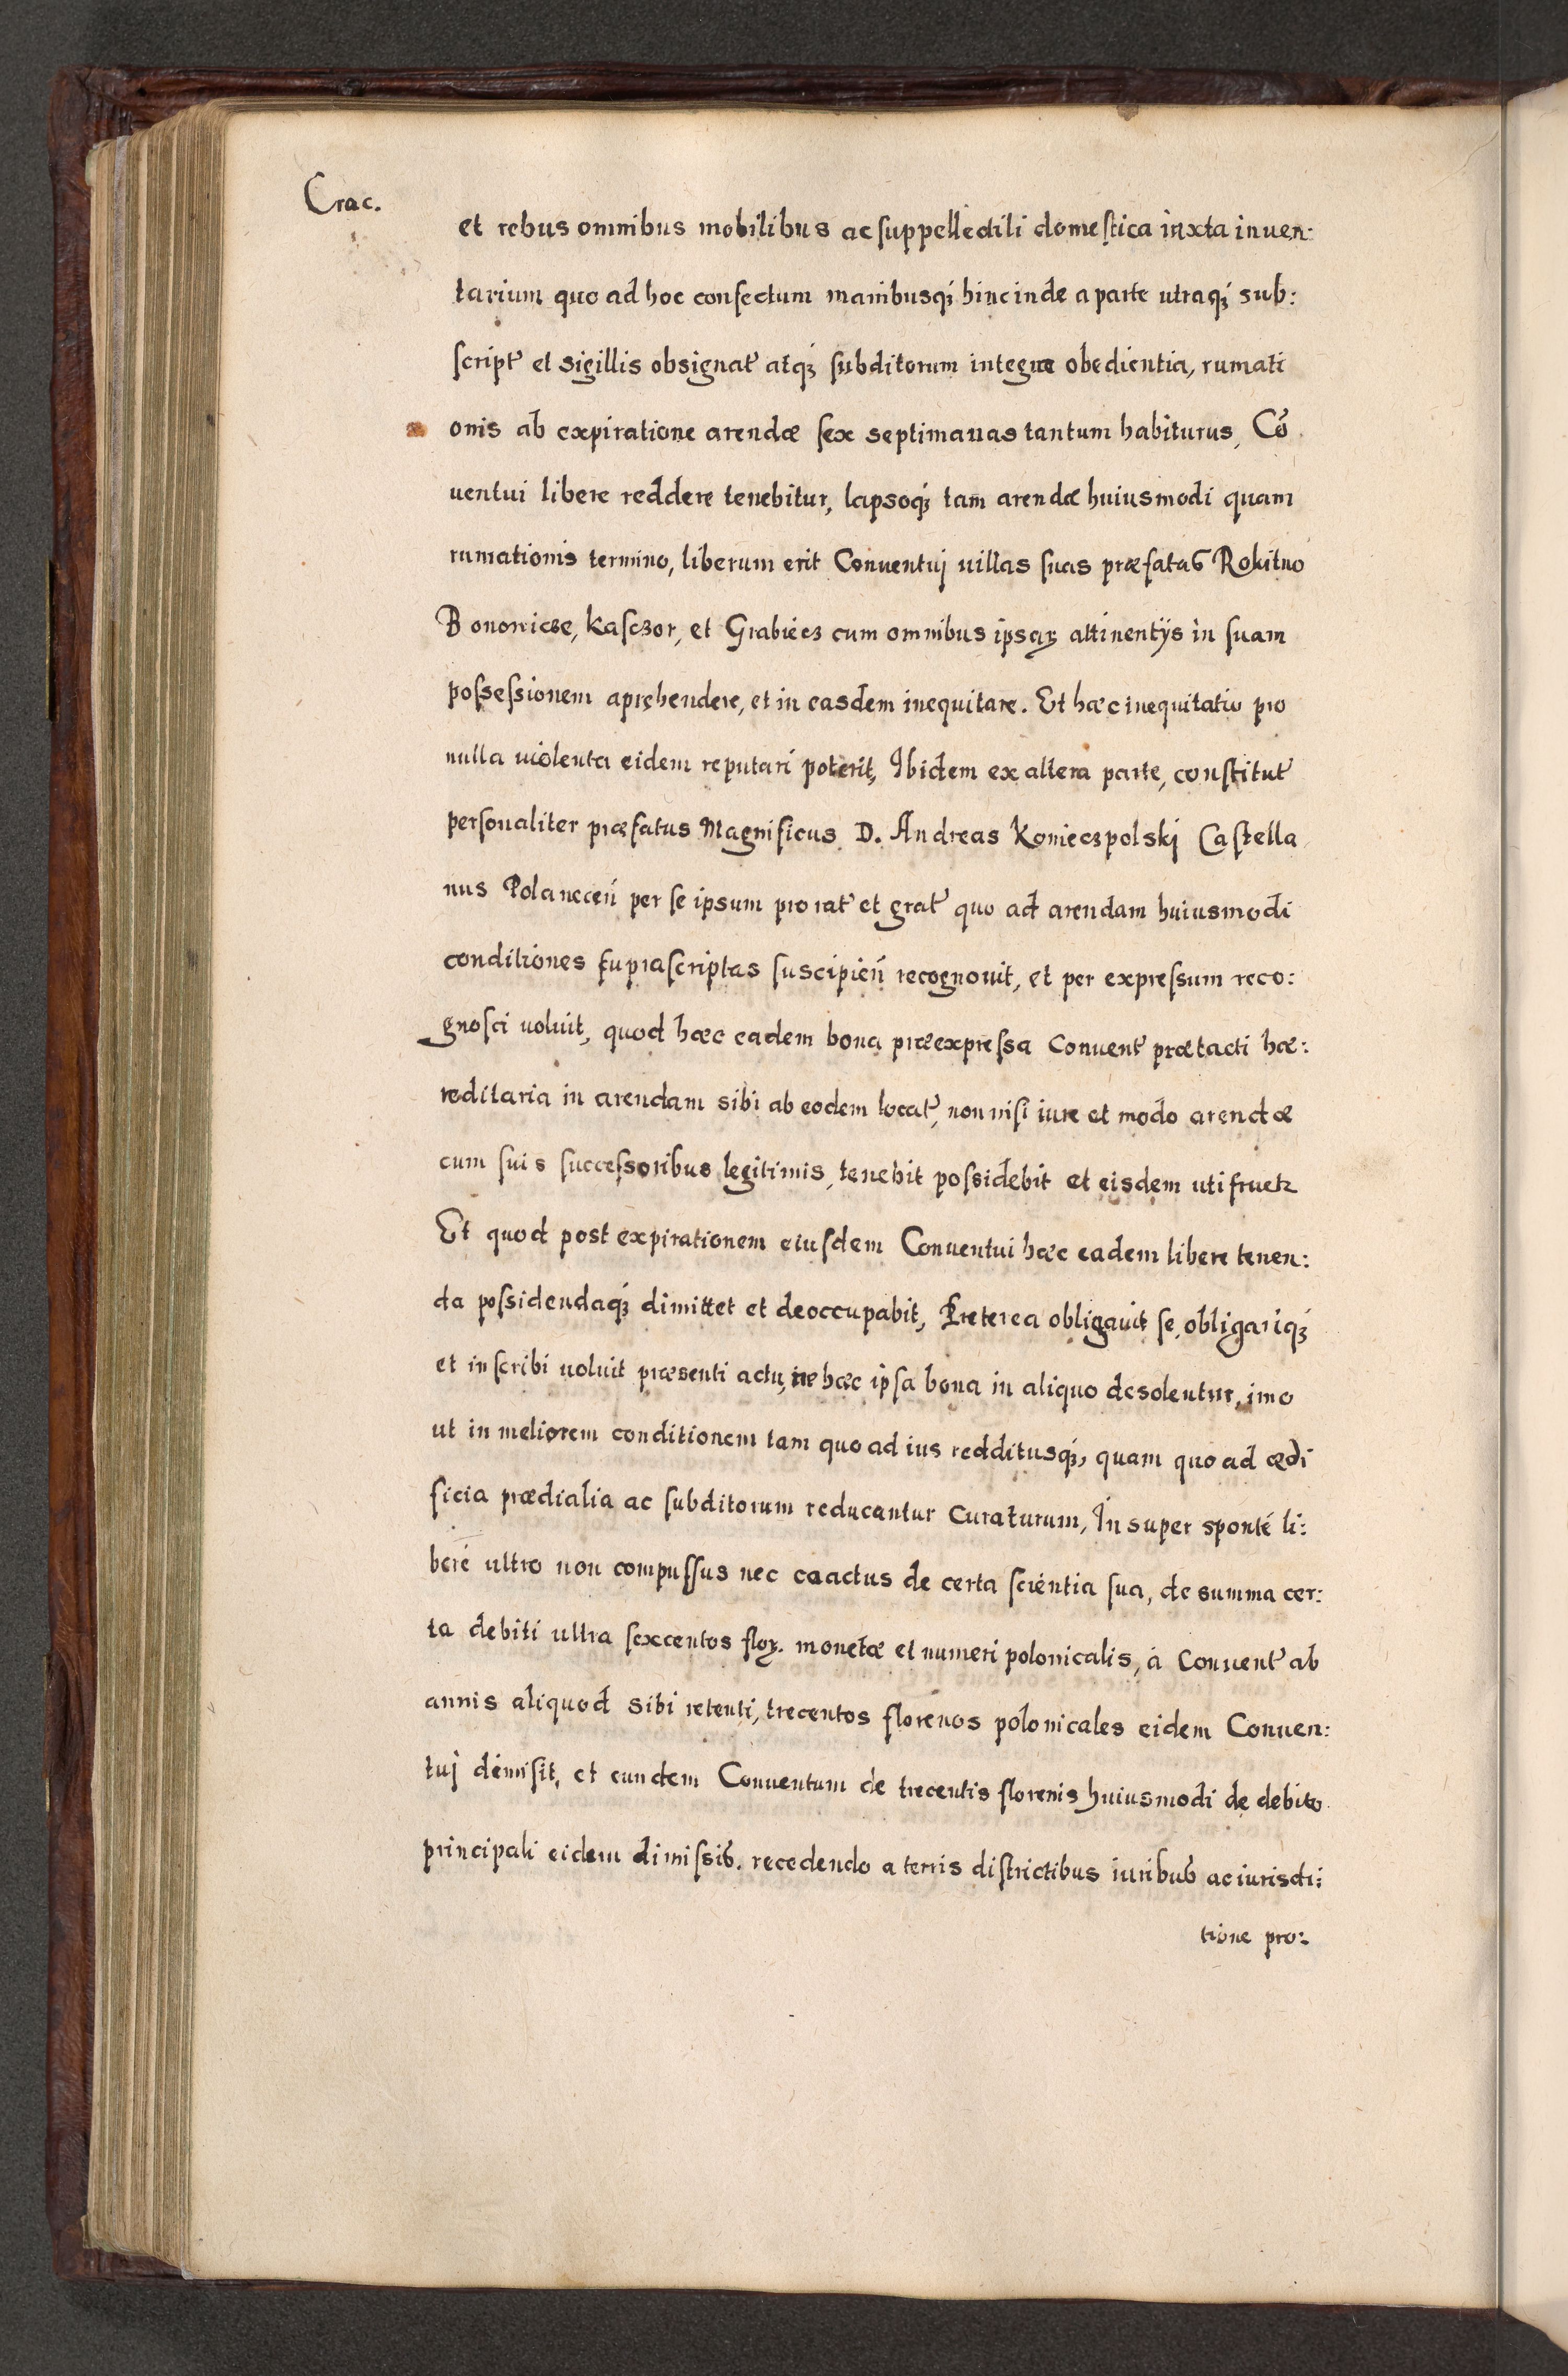 Crac.
et rebus omnibus mobilibus ac suppellectili domestica iuxta inuen:
tarium quo ad hoc confectum manibusqꝫ hinc inde a parte utraqꝫ sub:
script̃ et sigillis obsignat̃ atqꝫ subditorum integra obedientia, rumati
onis ab expiratione arendæ sex septimanas tantum habiturus, Cõ
uentui libere reddere tenebitur, lapsoqꝫ tam arendæ huiusmodi quam
rumationis termino, liberum erit Conuentuj uillas suas præfatas Rokitno
Bonowicze, Kasczor, et Grabiecz cum omnibus ipsaꝝ attinentijs in suam
possessionem apręhendere, et in easdem inequitare. Et hæc inequitatio pro
nulla uiolenta eidem reputari poterit, Ibidem ex altera parte, constitut̃
personaliter præfatus Magnificus D. Andreas Konieczpolskj Castella
nus Polanecen̄ per se ipsum pro rat̃ et grat̃ quo ad arendam huiusmodi
conditiones suprascriptas suscipien̄ recognouit, et per expressum reco:
gnosci uoluit, quod hæc eadem bona præexpressa Conuent̃ prætacti hæ:
reditaria in arendam sibi ab eodem locat̃, non nisi iure et modo arendæ
cum suis successoribus legitimis, tenebit possidebit et eisdem uti fruetꝛ
Et quod post expirationem eiusdem Conuentui hæc eadem libere tenen:
da possidendaqꝫ dimittet et deoccupabit, Preterea obligauit se, obligariqꝫ
et inscribi uoluit præsenti actu, ne hæc ipsa bona in aliquo desolentur, imo
ut in meliorem conditionem tam quo ad ius redditusqꝫ, quam quo ad ædi
ficia prædialia ac subditorum reducantur curaturum, Insuper sponté li:
beré ultro non compussus nec coactus de certa scientia sua, de summa cer:
ta debiti ultra sexcentos floꝝ. monetæ et numeri polonicalis, à Conuent̃ ab
annis aliquod sibi retenti, trecentos florenos polonicales eidem Conuen:
tuj dimisit, et eundem Conuentum de trecentis florenis huiusmodi de debito
principali eidem dimissis. recedendo a terris districtibus iuribus ac iurisdi:
tione pro: